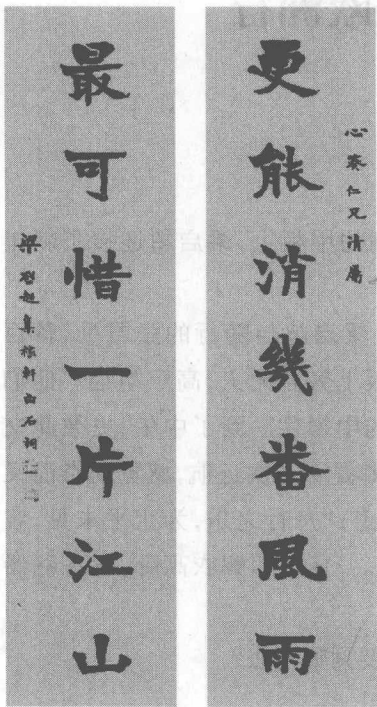 更能消幾番風雨
心葵仁兄清屬
最可惜一片江山
梁啓超集稼軒白石詞